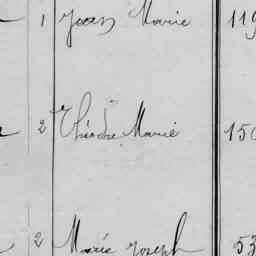 1 Jean Marie 119
2 Théodre Marie 150
2 Marie Joseph 53